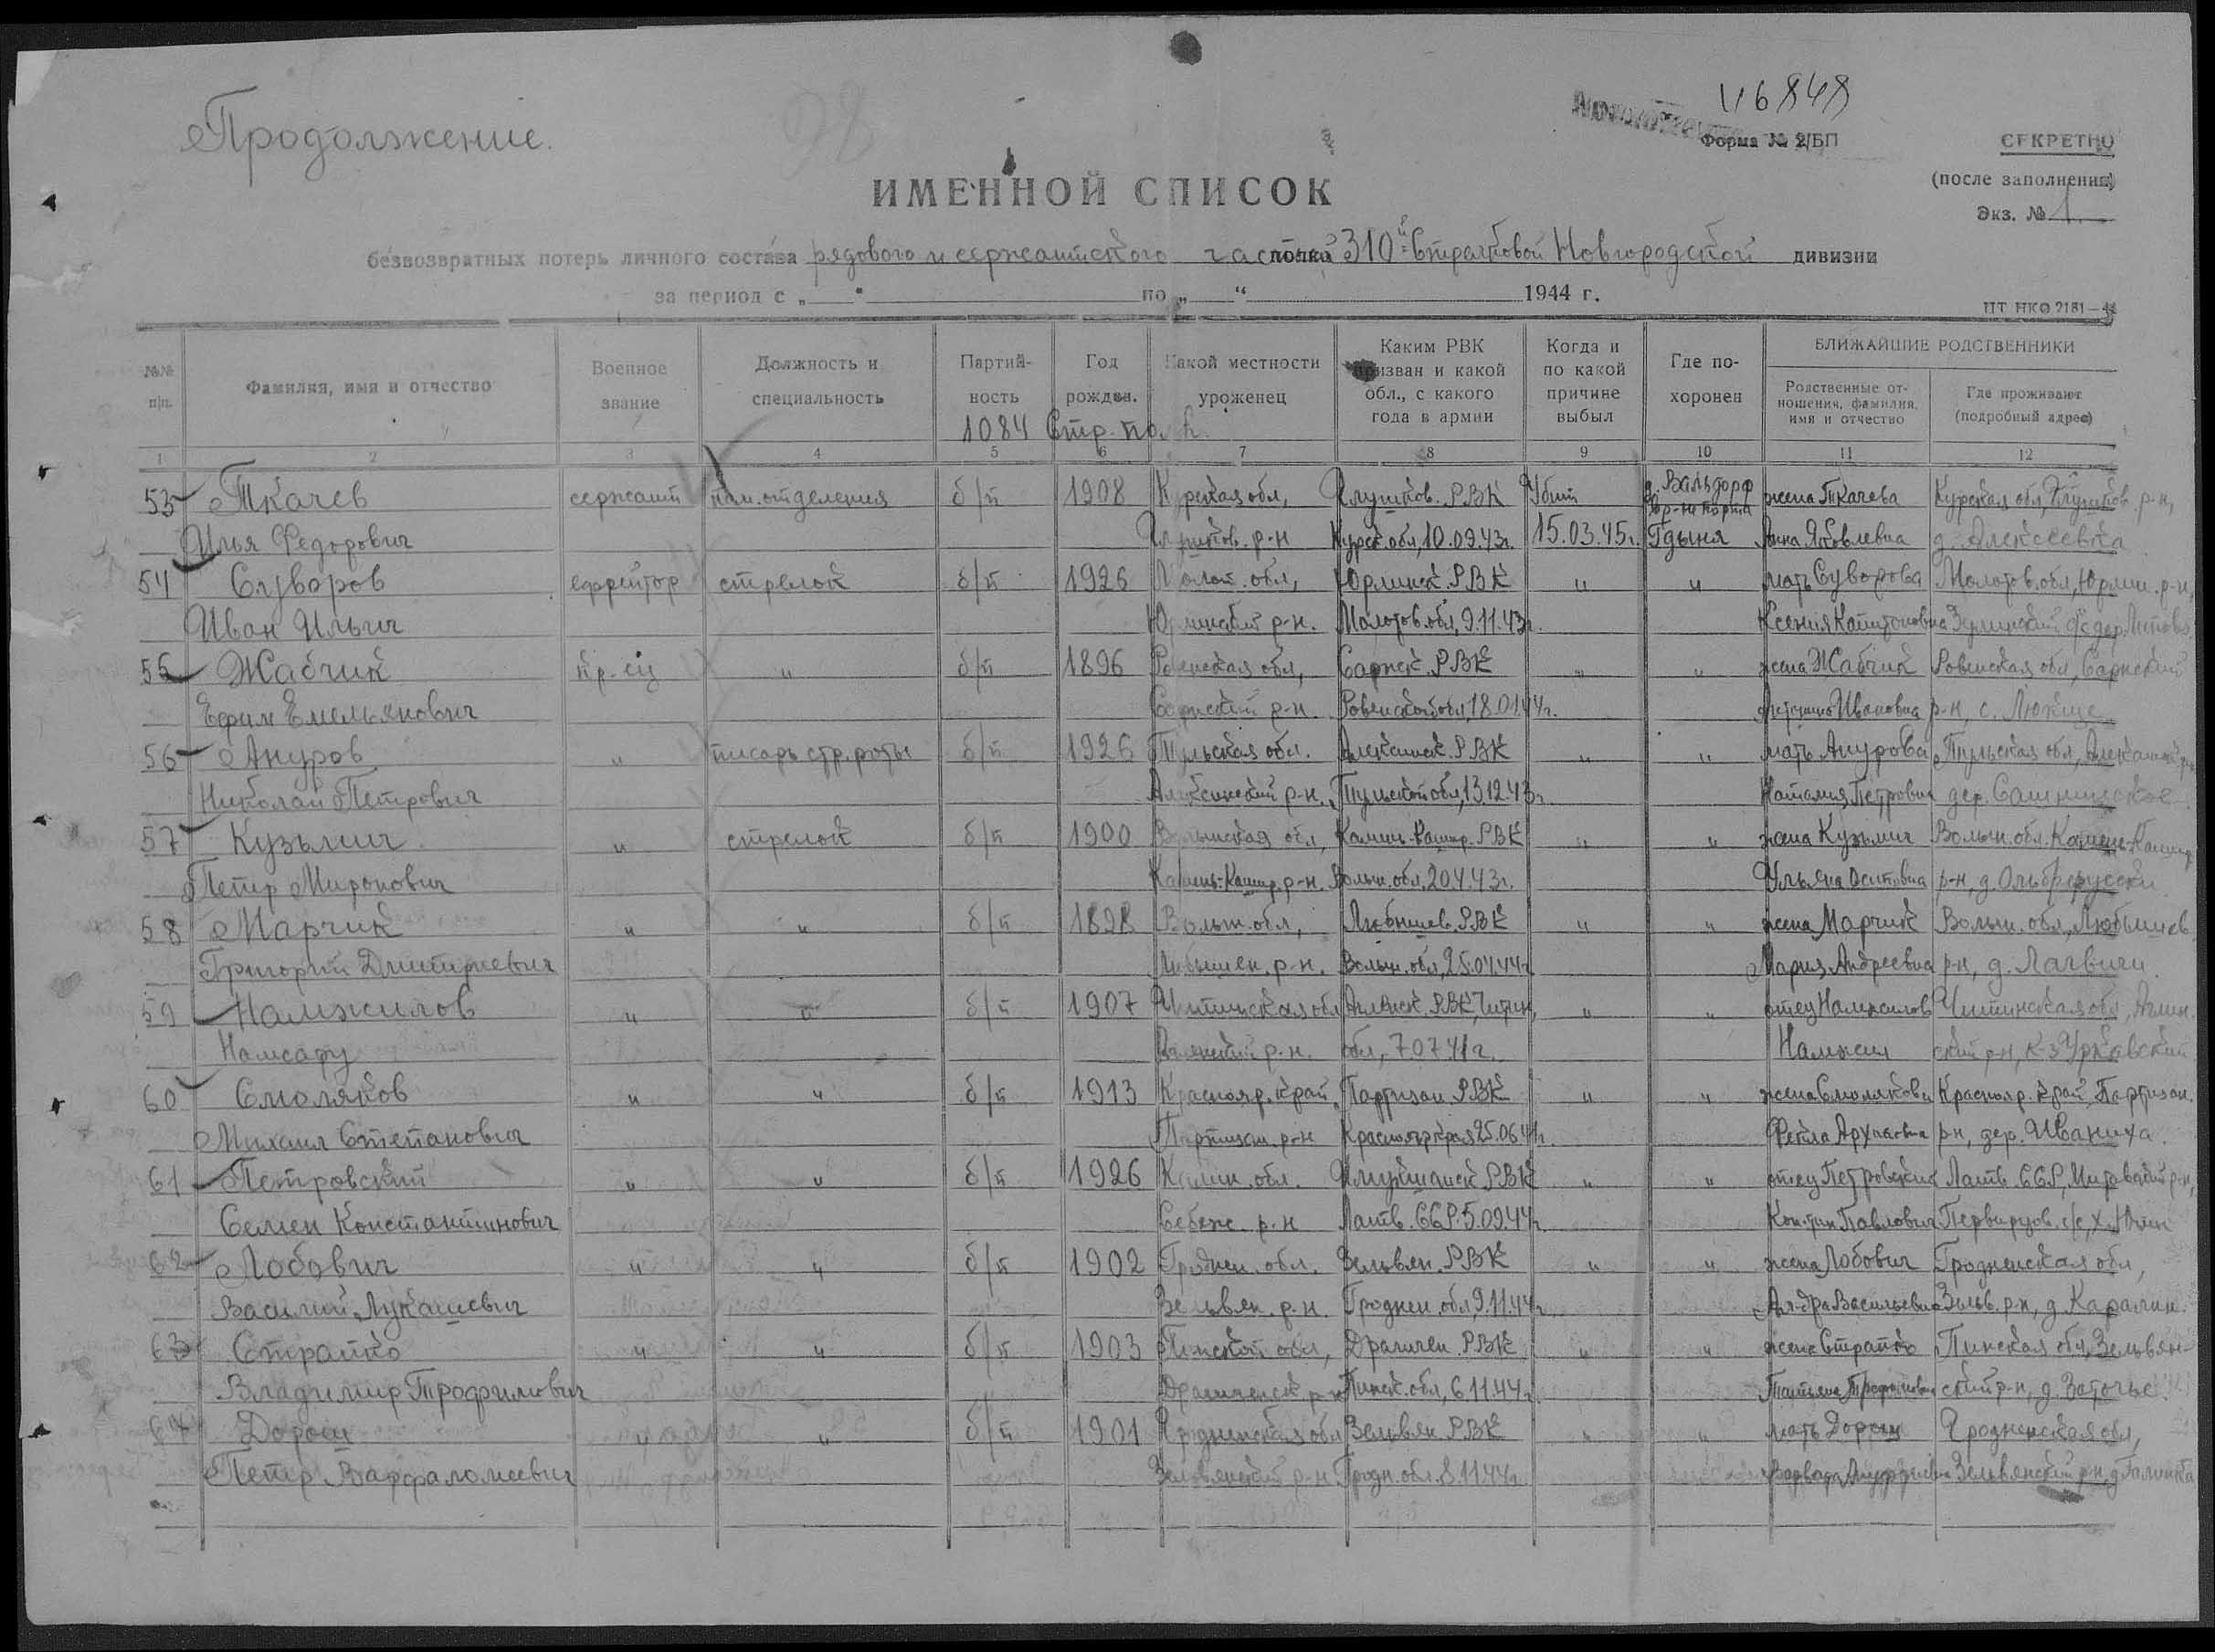 Продолжение.
98
116848
Форма № 2/БП
СЕКРЕТНО
(после заполнения)
Экз. № 1
ИМЕННОЙ СПИСОК
безвозвратных потерь личного состава рядового и сержантского 310й Стрелковой Новгородской дивизии
за период с „ “ по „ “ 1944 г.
№№ п/п. Фамилия, имя и отчество Военное звание Должность и специальность Партийность Год рожден. Какой местности уроженец Каким РВК призван и какой обл., с какого года в армии Когда и по какой причине выбыл Где похоронен БЛИЖАЙШИЕ РОДСТВЕННИКИ Родственные отношения, фамилия, имя и отчество Где проживают (подробный адрес)
1084 Стр. по
1 2 3 4 5 6 7 8 9 10 11 12
53 Ткачев сержант ком. отделения б/п 1908 Курская обл, Глушков. РВК Убит д. Вальдорф жена Ткачева Курская обл, Глушков. р-н,
Илья Федорович Глушков. р-н Курск. обл, 10.09.43г. 15.03.45г. Гдыня Анна Яковлевна д. Алексеевка
54 Суворов ефрейтор стрелок б/п 1926 Молот. обл, Юрлинск. РВК " " мать Суворова Молотов. обл, Юрлин. р-н,
Иван Ильич Юрлинский р-н. Молотов. обл, 9.11.43г. Ксения Капитоновна
55 Жабчик кр-ец " б/п 1896 Ровенская обл, Сарнск. РВК " " жена Жабчик Ровенская обл, Сарнский
Ефим Емельянович Сарнский р-н. Ровенской обл, 18.01.44г. Ивановна р-н, с. Люхче
56 Ануров " писарь стр. роты б/п 1926 Тульская обл. Алексинск. РВК " " мать Анурова Тульская обл, Алексинск р-н
Николай Петрович Алексинский р-н. Тульской обл, 13.12.43г. Наталия Петровна дер.
57 Кузьмич " стрелок б/п 1900 Волынская обл, Камень-Кашир. РВК " " жена Кузьмич Волын. обл. Камень-Кашир.
Петр Миронович Камень-Кашир. р-н. Волын. обл, 20.4.43г. Ульяна Осиповна р-н, д.
58 Марчик " " б/п 1898 Волын. обл, Любешов. РВК " " жена Марчик Волын. обл, Любешов.
Григорий Дмитриевич р-н. Волын. обл, 25.04.44г. Мария Андреевна р-н, д.
59 Намжилов " " б/п 1907 Читинская обл Агинск. РВК, Читин, " " отец Намжилов Читинская обл, Агин.
Намсару Агинский р-н. обл, 7.07.41г. Намжил ский р-н,
60 Смоляков " " б/п 1913 Краснояр. край, Партизан. РВК " " жена Смолякова Краснояр. край, Партизан.
Михаил Степанович Партизан р-н Краснояр края 25.06.41г. Фекла Архиповна р-н, дер. Иваниха.
61 Петровский " " б/п 1926 Калин. обл. РВК " " отец Петровский Латв. ССР, Митавский р-н,
Семен Константинович Себеж. р-н Латв. ССР. 5.09.44г. Кон-тин Павлович
62 Лобович " " б/п 1902 Гроднен. обл. Зельвен. РВК " " жена Лобович Гродненская обл,
Василий Лукашевич Зельвен. р-н. Гроднен. обл, 9.11.44г. Ал-дра Васильевна Зельв. р-н, д. Каралин.
63 Страпко " " б/п 1903 Пинской обл, Драгичен. РВК " " жена Страпко Пинская обл, Зельвен-
Владимир Трофимович р-н Пинск. обл, 6.11.44г. Татьяна ский р-н, д. Заточье.
64 Дорош " " б/п 1901 Гродненская обл Зельвен РВК " " мать Дорош Гродненская обл,
Петр Варфаломеевич Зельвенский р-н Гродн. обл. 8.11.44г. Варвара Зельвенский р-н,